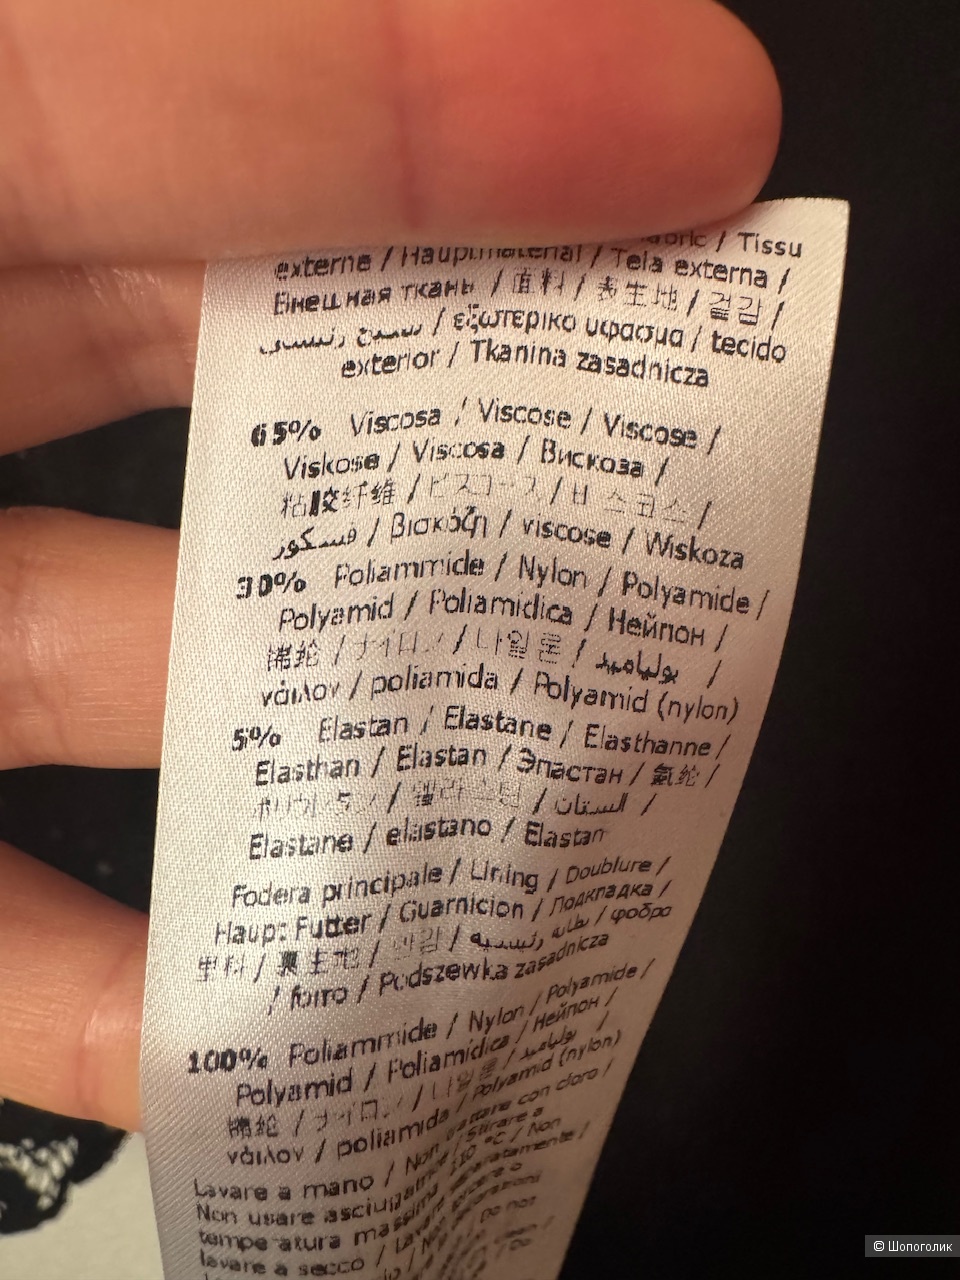 / Tissu
externe / Hauptmaterial / Tela externa /
Внешная ткань / 面料 / 表生地 / 겉감 /
/ εξωτερικο υφασμα / tecido
exterior / Tkanina zasadnicza
65% Viscosa / Viscose / Viscose /
Viskose / Viscosa / Вискоза /
粘胶纤维 / ビスコース / 비스코스 /
فسكور / βισκόζη / viscose / Wiskoza
30% Poliammide / Nylon / Polyamide /
Polyamid / Poliamidica / Нейлон /
锦纶 / ナイロン / 나일론 / بولياميد /
νάιλον / poliamida / Polyamid (nylon)
5% Elastan / Elastane / Elasthanne /
Elasthan / Elastan / Эластан / 氨纶 /
ポリウレタン / 엘라스틴 / الستان /
Elastane / elastano / Elastan
Fodera principale / Lining / Doublure /
Haupt Futter / Guarnicion / Подкладка /
里料 / 裏生地 / 안감 / بطانه رئيسيه / φοδρα
/ forro / Podszewka zasadnicza
100% Poliammide / Nylon / Polyamide /
Polyamid / Poliamidica / Нейлон /
锦纶 / ナイロン / 나일론 / بولياميد /
νάιλον / poliamida / Polyamid (nylon)
Lavare a mano / Non trattare con cloro /
Non usare asciugatrice / Stirare a
temperatura massima 110 °C / Non
lavare a secco /
© Шопоголик